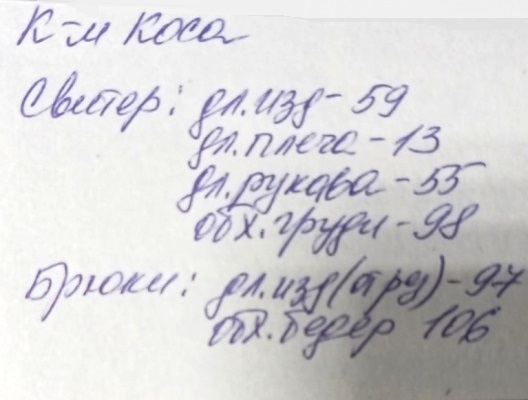 К-м Коса
Свитер: дл.изд- 59
дл.плеча - 13
дл.рукава - 55
обх.груди - 98
Брюки: дл.изд(отрез) - 97
обх.бедер 106